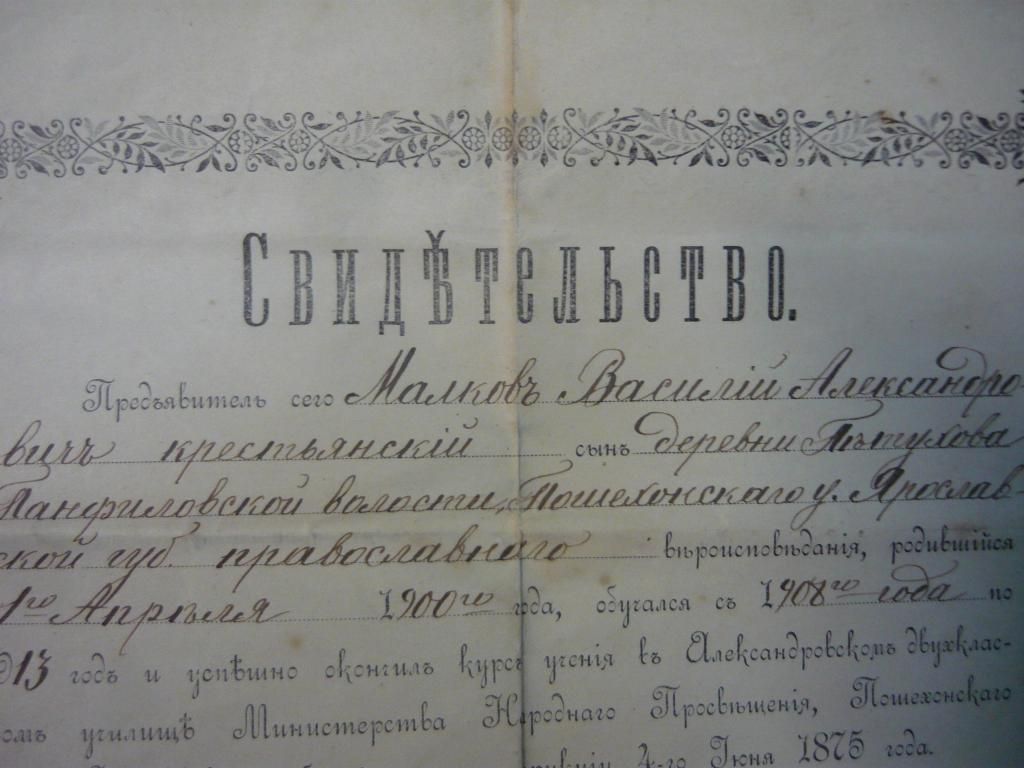 Свидѣтельство.
Предъявитель сего Малковъ Василій Александро-
вичъ крестьянскій сынъ деревни Пѣтухова
Панфиловской волости, Пошехонскаго у. Ярослав-
ской губ. православнаго вѣроисповѣданія, родившійся
1го Апрѣля 1900го года, обучался съ 1908го года по
13 годъ и успѣшно окончилъ курсъ ученія въ Александровскомъ двухклас-
омъ училищѣ Министерства Народнаго Просвѣщенія, Пошехонскаго
4-го Іюня 1875 года.